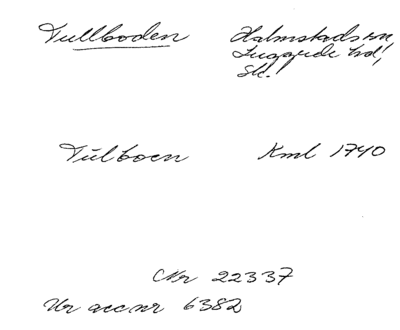 Tullboden
Halmstads sn,
Luggude hd,
Sk.
Tulboen
Kml 1740
Nr 22337
Ur acc nr 6382